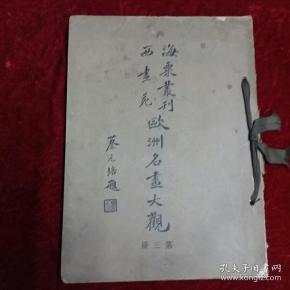 海粟叢刊
西畫苑
歐洲名畫大觀
第三冊
蔡元培題
孔夫子旧书网